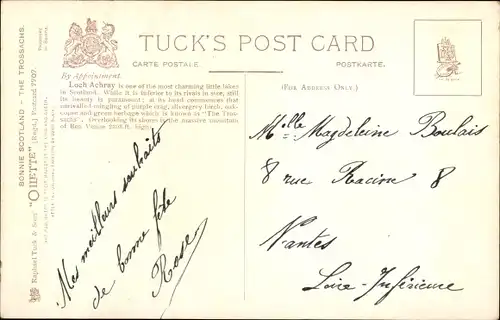 TUCK'S POST CARD
CARTE POSTALE. POSTKARTE.
By Appointment.
Loch Achray is one of the most charming little lakes
in Scotland. While it is inferior to its rivals in size, still
its beauty is paramount; at its head commences that
unrivalled mingling of purple crag, silvergrey birch, oak-
copse and green herbage which is known as "The Tros-
sachs". Overlooking its shores is the massive mountain
of Ben Venue 2393 ft. high.
(FOR ADDRESS ONLY.)
BONNIE SCOTLAND - THE TROSSACHS.
Raphael Tuck & Sons' "OILETTE" [Regd.] Postcard 7707.
Mes meilleurs souhaits
de bonne fête
Rose
Mlle Magdeleine Boulais
8 rue Racine 8
Nantes
Loire-Inférieure